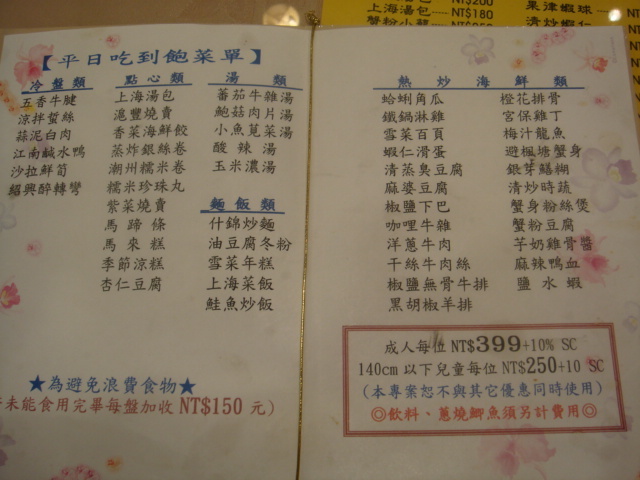 【平日吃到飽菜單】
冷盤類
五香牛腱
涼拌蜇絲
蒜泥白肉
江南鹹水鴨
沙拉鮮筍
紹興醉轉彎
點心類
上海湯包
滬豐燒賣
香菜海鮮餃
蒸炸銀絲卷
潮州糯米卷
糯米珍珠丸
紫菜燒賣
馬蹄條
馬來糕
季節涼糕
杏仁豆腐
湯類
蕃茄牛雜湯
鮑菇肉片湯
小魚莧菜湯
酸辣湯
玉米濃湯
麵飯類
什錦炒麵
油豆腐冬粉
雪菜年糕
上海菜飯
鮭魚炒飯
★為避免浪費食物★
未能食用完畢每盤加收 NT$150 元)
熱炒海鮮類
蛤蜊角瓜
鐵鍋淋雞
雪菜百頁
蝦仁滑蛋
清蒸臭豆腐
麻婆豆腐
椒鹽下巴
咖哩牛雜
洋蔥牛肉
干絲牛肉絲
椒鹽無骨牛排
黑胡椒羊排
橙花排骨
宮保雞丁
梅汁龍魚
避楓塘蟹身
銀芽鱔糊
清炒時蔬
蟹身粉絲煲
蟹粉豆腐
芋奶雞骨醬
麻辣鴨血
鹽水蝦
成人每位 NT$399+10% SC
140cm 以下兒童每位 NT$250+10 SC
(本專案恕不與其它優惠同時使用)
◎飲料、蔥燒鯽魚須另計費用◎
上海湯包 NT$180
蟹粉小籠
果律蝦球
清炒蝦仁
NT$200